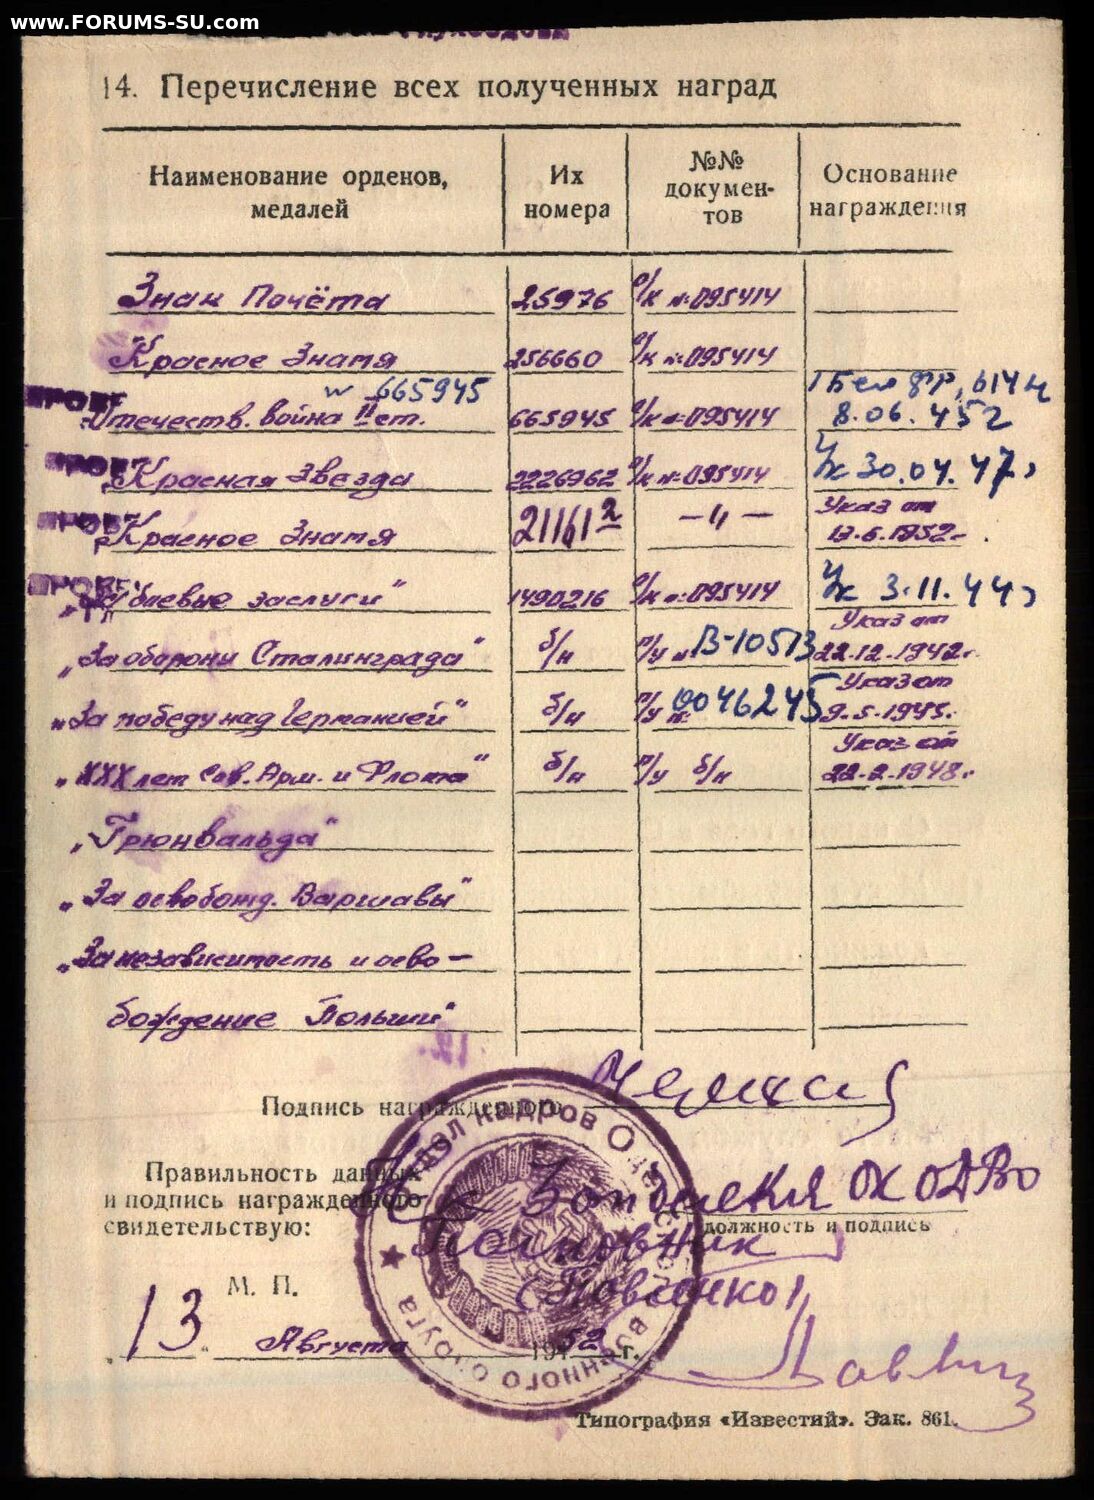 www.FORUMS-SU.com
14. Перечисление всех полученных наград
Наименование орденов, медалей
Их номера
№№ докумен-тов
Основание награждения
Знак Почёта 25976 о/к №095414
"Красное Знамя 256660 о/к №095414
№ 665945 1 Бел фр, 614 н
Отечеств. война II ст. 665945 о/к №095414 8.06.45г
Красная Звезда 2226962 о/к №095414 Ук 30.04.47г
Указ от
Красное Знамя 21161 2 —"— 13.6.1952г.
„За боевые заслуги" 1490216 о/к №095414 Ук 3.11.44г
Указ от
„За оборону Сталинграда" б/н п/у № В-10513 22.12.1942г.
Указ от
„За победу над Германией" б/н п/у № 0046245 9.5.1945г.
Указ от
„XXX лет Сов. Арм. и Флота" б/н п/у б/н 22.2.1948г.
„Грюнвальда"
„За освобожд. Варшавы"
„За независимость и осво-
бождение Польши"
Подпись награжденного
Правильность данных
и подпись награжденного
свидетельствую:
ОК ОДВО
должность и подпись
Полковник
(Повсенко)
М. П.
13 Августа 1952 г.
Отдел кадров Одесского военного округа
Типография «Известий». Зак. 861.